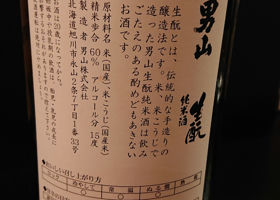 男山 生酛
純米酒
生酛とは、伝統的な手造りの
醸造法です。米・米こうじで
造った男山生酛純米酒は飲み
ごたえのある酌めどもあきない
お酒です。
原材料名 米(国産)・米こうじ(国産米)
精米歩合 60% アルコール分 15度
製造者 男山株式会社
北海道旭川市永山2条7丁目1番33号
お酒は20歳になってから。
おいしいお召し上がり方
ロック 冷やして 常温 ぬる燗 熱燗